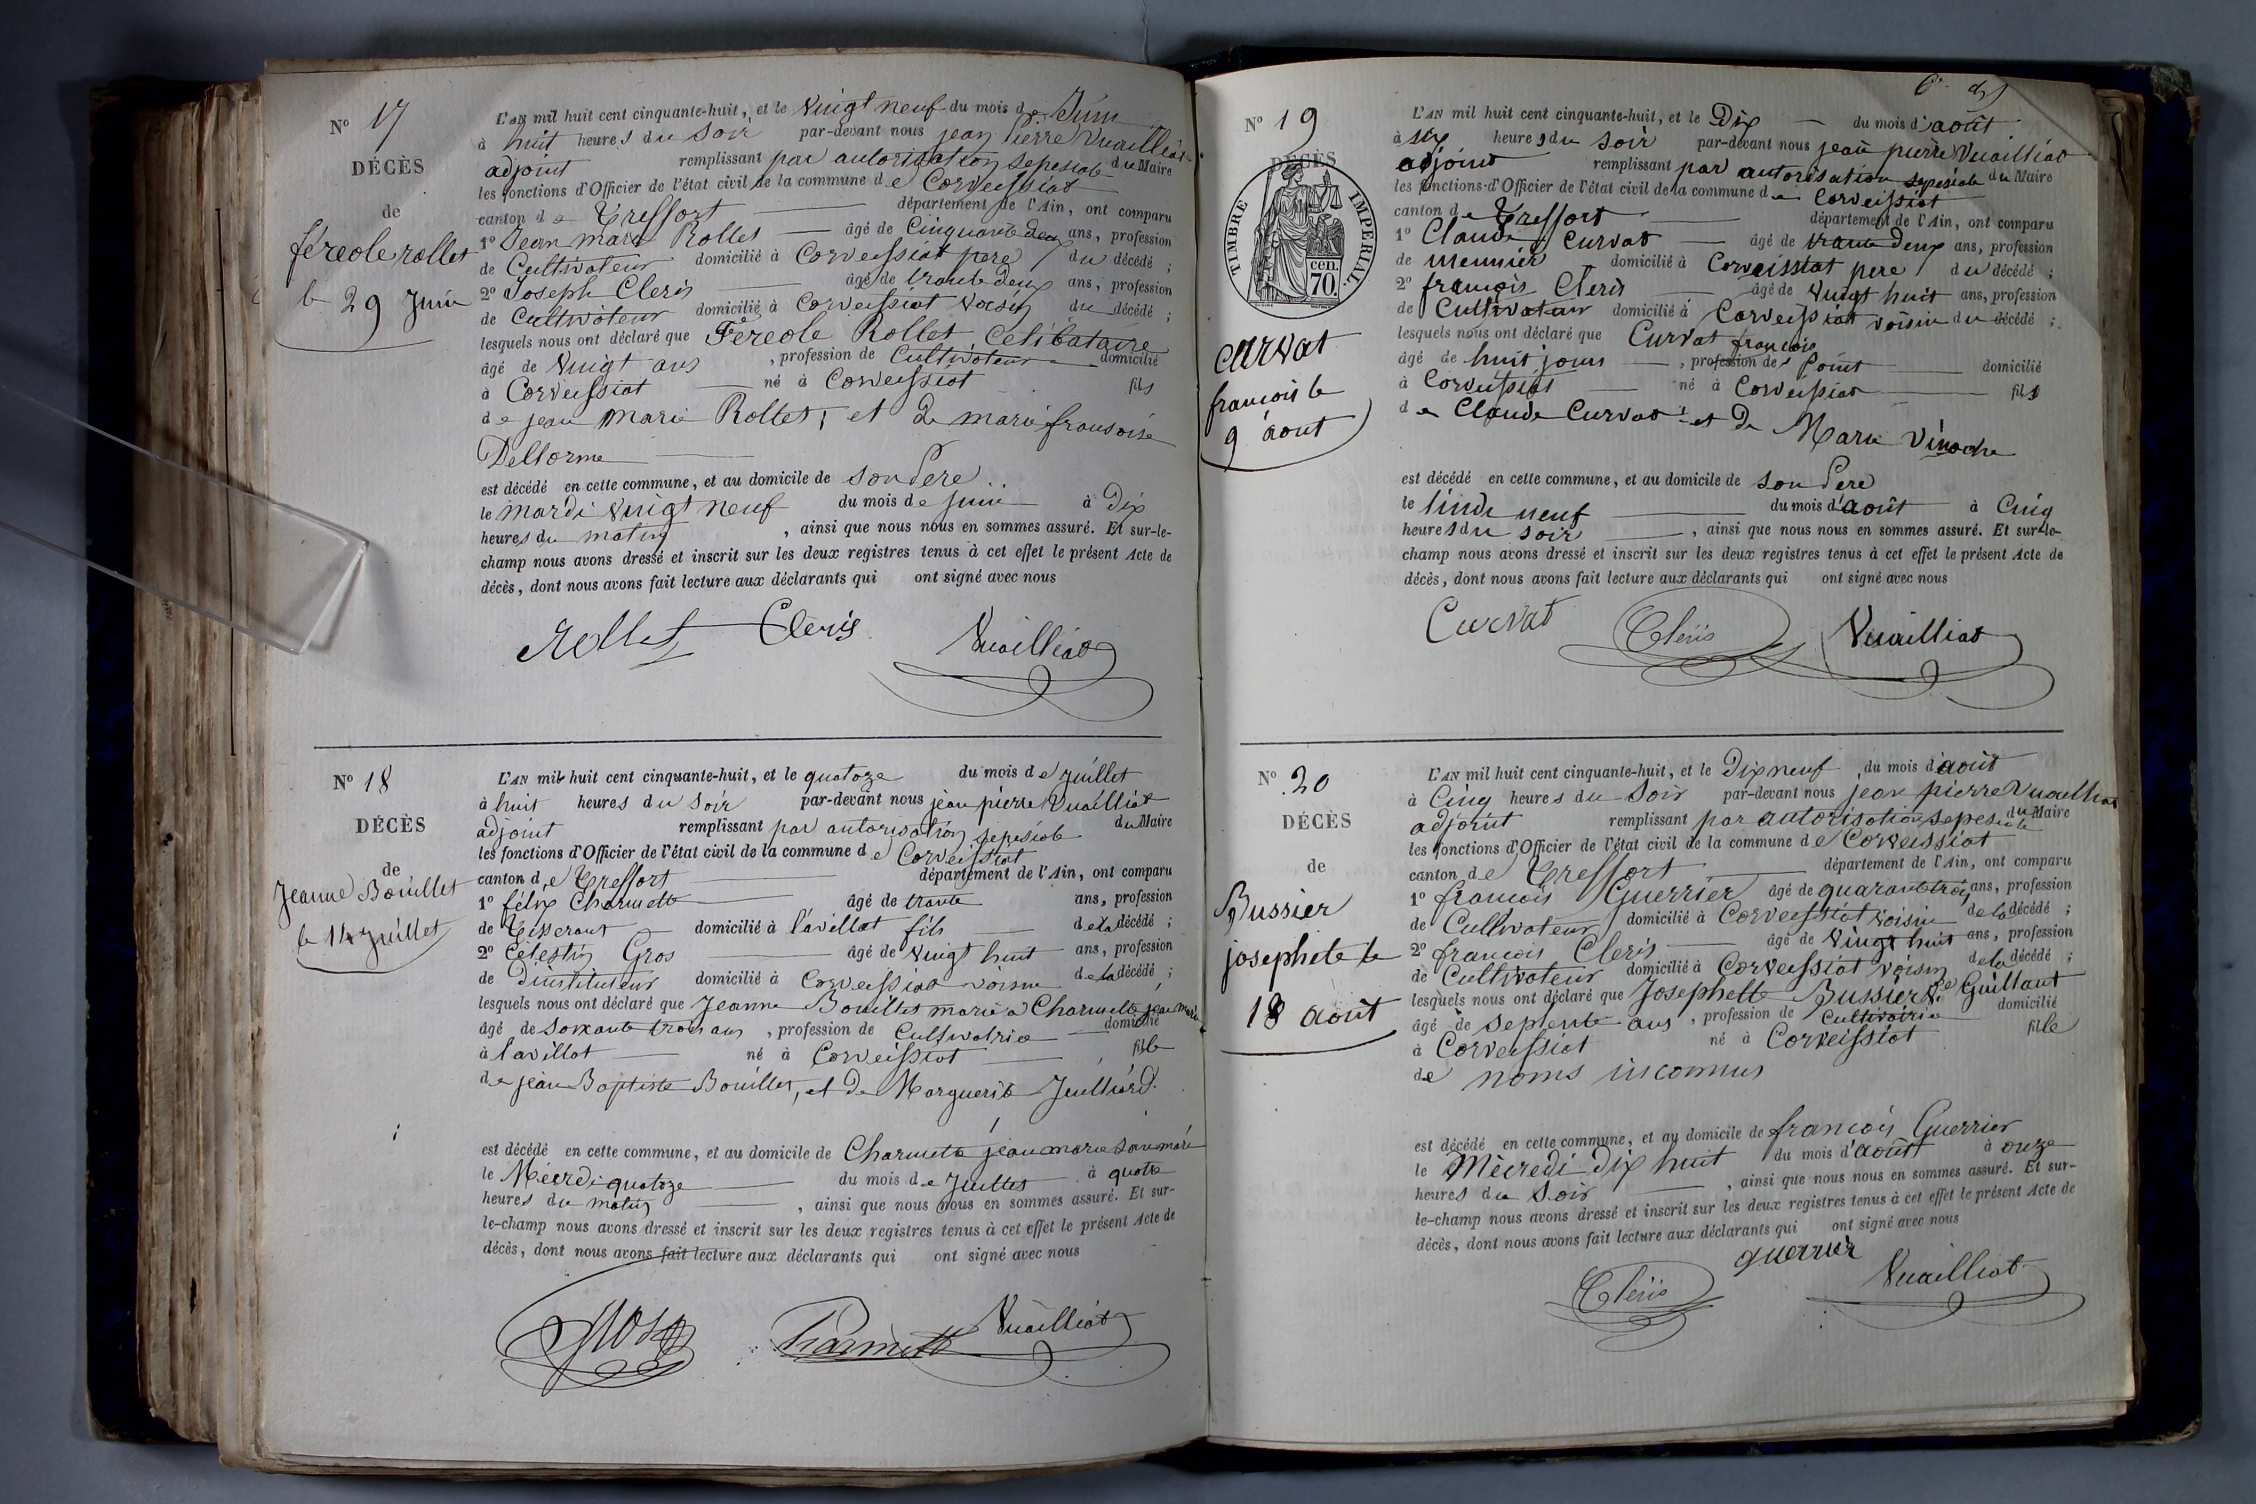 Nº 17
DÉCÈS
de
féréole rollet
le 29 Juin
L'AN mil huit cent cinquante-huit, et le Vuigt neuf du mois de Juin
à huit heures du Soir par-devant nous jean Pierre Vuailliat
adjoint remplissant par autorisation sepesiale du Maire
les fonctions d'Officier de l'état civil de la commune de Corveissiat
canton de Treffort département de l'Ain, ont comparu
1º Jean marie Rollet âgé de Cinquante deux ans, profession
de Cultivateur domicilié à Corveissiat pere du décédé ;
2º Joseph Cleris âgé de trante deux ans, profession
de Cultivateur domicilié à Corveissiat voisin du décédé ;
lesquels nous ont déclaré que Féréole Rollet Celibataire
âgé de Vuigt ans , profession de Cultivateur domicilié
à Corveissiat né à Corveissiat fils
de jean Marie Rollet, et de marie fransoise
Dellorme
est décédé en cette commune, et au domicile de son Pere
le mardi Vuigt neuf du mois de juin à Dix
heures du matin , ainsi que nous nous en sommes assuré. Et sur-le-
champ nous avons dressé et inscrit sur les deux registres tenus à cet effet le présent Acte de
décès, dont nous avons fait lecture aux déclarants qui ont signé avec nous
Rollet Cleris Vuailliat
Nº 18
DÉCÈS
de
Jeanne Bouillet
le 14 juillet
L'AN mil huit cent cinquante-huit, et le quatoze du mois de juillet
à huit heures du soir par-devant nous jean pierre Vuailliat
adjoint remplissant par autorisation sepesiale du Maire
les fonctions d'Officier de l'état civil de la commune de Corveissiat
canton de Treffort département de l'Ain, ont comparu
1º félix Charmette âgé de trante ans, profession
de Tisserant domicilié à lavillat fils de la décédé ;
2º Célestin Gros âgé de vuigt huit ans, profession
de D'instituteur domicilié à Corveissiat voisin de la décédé ;
lesquels nous ont déclaré que Jeanne Bouillet marié à Charmette jean marie
âgé de soixante trois ans , profession de Cultivatrice domicilié
à lavillat né à Corveissiat fille
de jean Baptiste Bouillet, et de Marguerite Juilliard
est décédé en cette commune, et au domicile de Charmette jean marie son mari
le Mécrdi quatoze du mois de Juillet à quatre
heures du matin , ainsi que nous nous en sommes assuré. Et sur-
le-champ nous avons dressé et inscrit sur les deux registres tenus à cet effet le présent Acte de
décès, dont nous avons fait lecture aux déclarants qui ont signé avec nous
Gros Charmette Vuailliat
Nº 19
DÉCÈS
TIMBRE IMPÉRIAL
70 cen.
Curvat
françois le
9 aout
L'AN mil huit cent cinquante-huit, et le Dix du mois d'août
à six heures du soir par-devant nous jean pierre Vuailliat
adjoint remplissant par autorisation sepesiale du Maire
les fonctions d'Officier de l'état civil de la commune de Corveissiat
canton de Treffort département de l'Ain, ont comparu
1º Claude Curvat âgé de trante deux ans, profession
de meunier domicilié à Corveissiat pere du décédé ;
2º françois Cleris âgé de Vuigt huit ans, profession
de Cultivateur domicilié à Corveissiat voisin du décédé ;
lesquels nous ont déclaré que Curvat françois
âgé de huit jours , profession de Point domicilié
à Corveissiat né à Corveissiat fils
de Claude Curvat et de Marie Vinoche
est décédé en cette commune, et au domicile de son Pere
le lindi neuf du mois d'août à Cinq
heures du soir , ainsi que nous nous en sommes assuré. Et sur-le-
champ nous avons dressé et inscrit sur les deux registres tenus à cet effet le présent Acte de
décès, dont nous avons fait lecture aux déclarants qui ont signé avec nous
Curvat Cleris Vuailliat
Nº 20
DÉCÈS
de
Bussier
josephete le
18 août
L'AN mil huit cent cinquante-huit, et le Dix neuf du mois d'août
à Cinq heures du Soir par-devant nous jean pierre Vuailliat
adjoint remplissant par autorisation sepesiale du Maire
les fonctions d'Officier de l'état civil de la commune de Corveissiat
canton de Treffort département de l'Ain, ont comparu
1º françois Guerrier âgé de quarante trois ans, profession
de Cultivateur domicilié à Corveissiat voisin de la décédé ;
2º françois Cleris âgé de Vingt huit ans, profession
de Cultivateur domicilié à Corveissiat voisin de la décédé ;
lesquels nous ont déclaré que Josephette Bussier Guillaut
âgé de septente ans , profession de Cultivatrice domicilié
à Corveissiat né à Corveissiat fille
de noms inconnus
est décédé en cette commune, et au domicile de françois Guerrier
le Mécredi Dix huit du mois d'août à onze
heures du Soir , ainsi que nous nous en sommes assuré. Et sur-
le-champ nous avons dressé et inscrit sur les deux registres tenus à cet effet le présent Acte de
décès, dont nous avons fait lecture aux déclarants qui ont signé avec nous
guerrier
Cleris Vuailliat